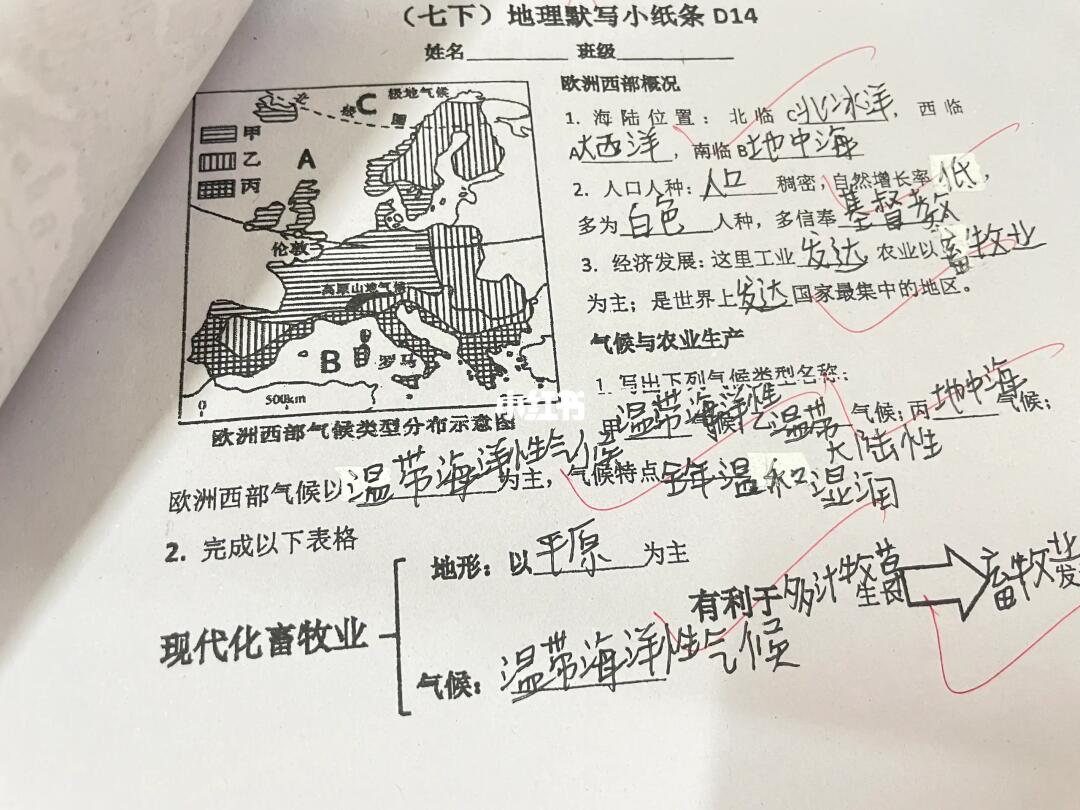 （七下）地理默写小纸条 D14
姓名 班级
极地气候
北极圈
C
甲
乙
丙
A
伦敦
高原山地气候
B
罗马
0 500km
欧洲西部气候类型分布示意图
欧洲西部概况
1. 海陆位置：北临C北冰洋，西临
A大西洋，南临B地中海
2. 人口人种：人口稠密，自然增长率低，
多为白色人种，多信奉基督教
3. 经济发展：这里工业发达 农业以畜牧业
为主；是世界上发达国家最集中的地区。
气候与农业生产
1. 写出下列气候类型名称：
甲温带海洋性气候；乙温带大陆性气候；丙地中海气候；
欧洲西部气候以温带海洋性气候为主，气候特点终年温和湿润
2. 完成以下表格
现代化畜牧业
地形：以平原为主
气候：温带海洋性气候
有利于多汁牧草生长
畜牧业发
小红书